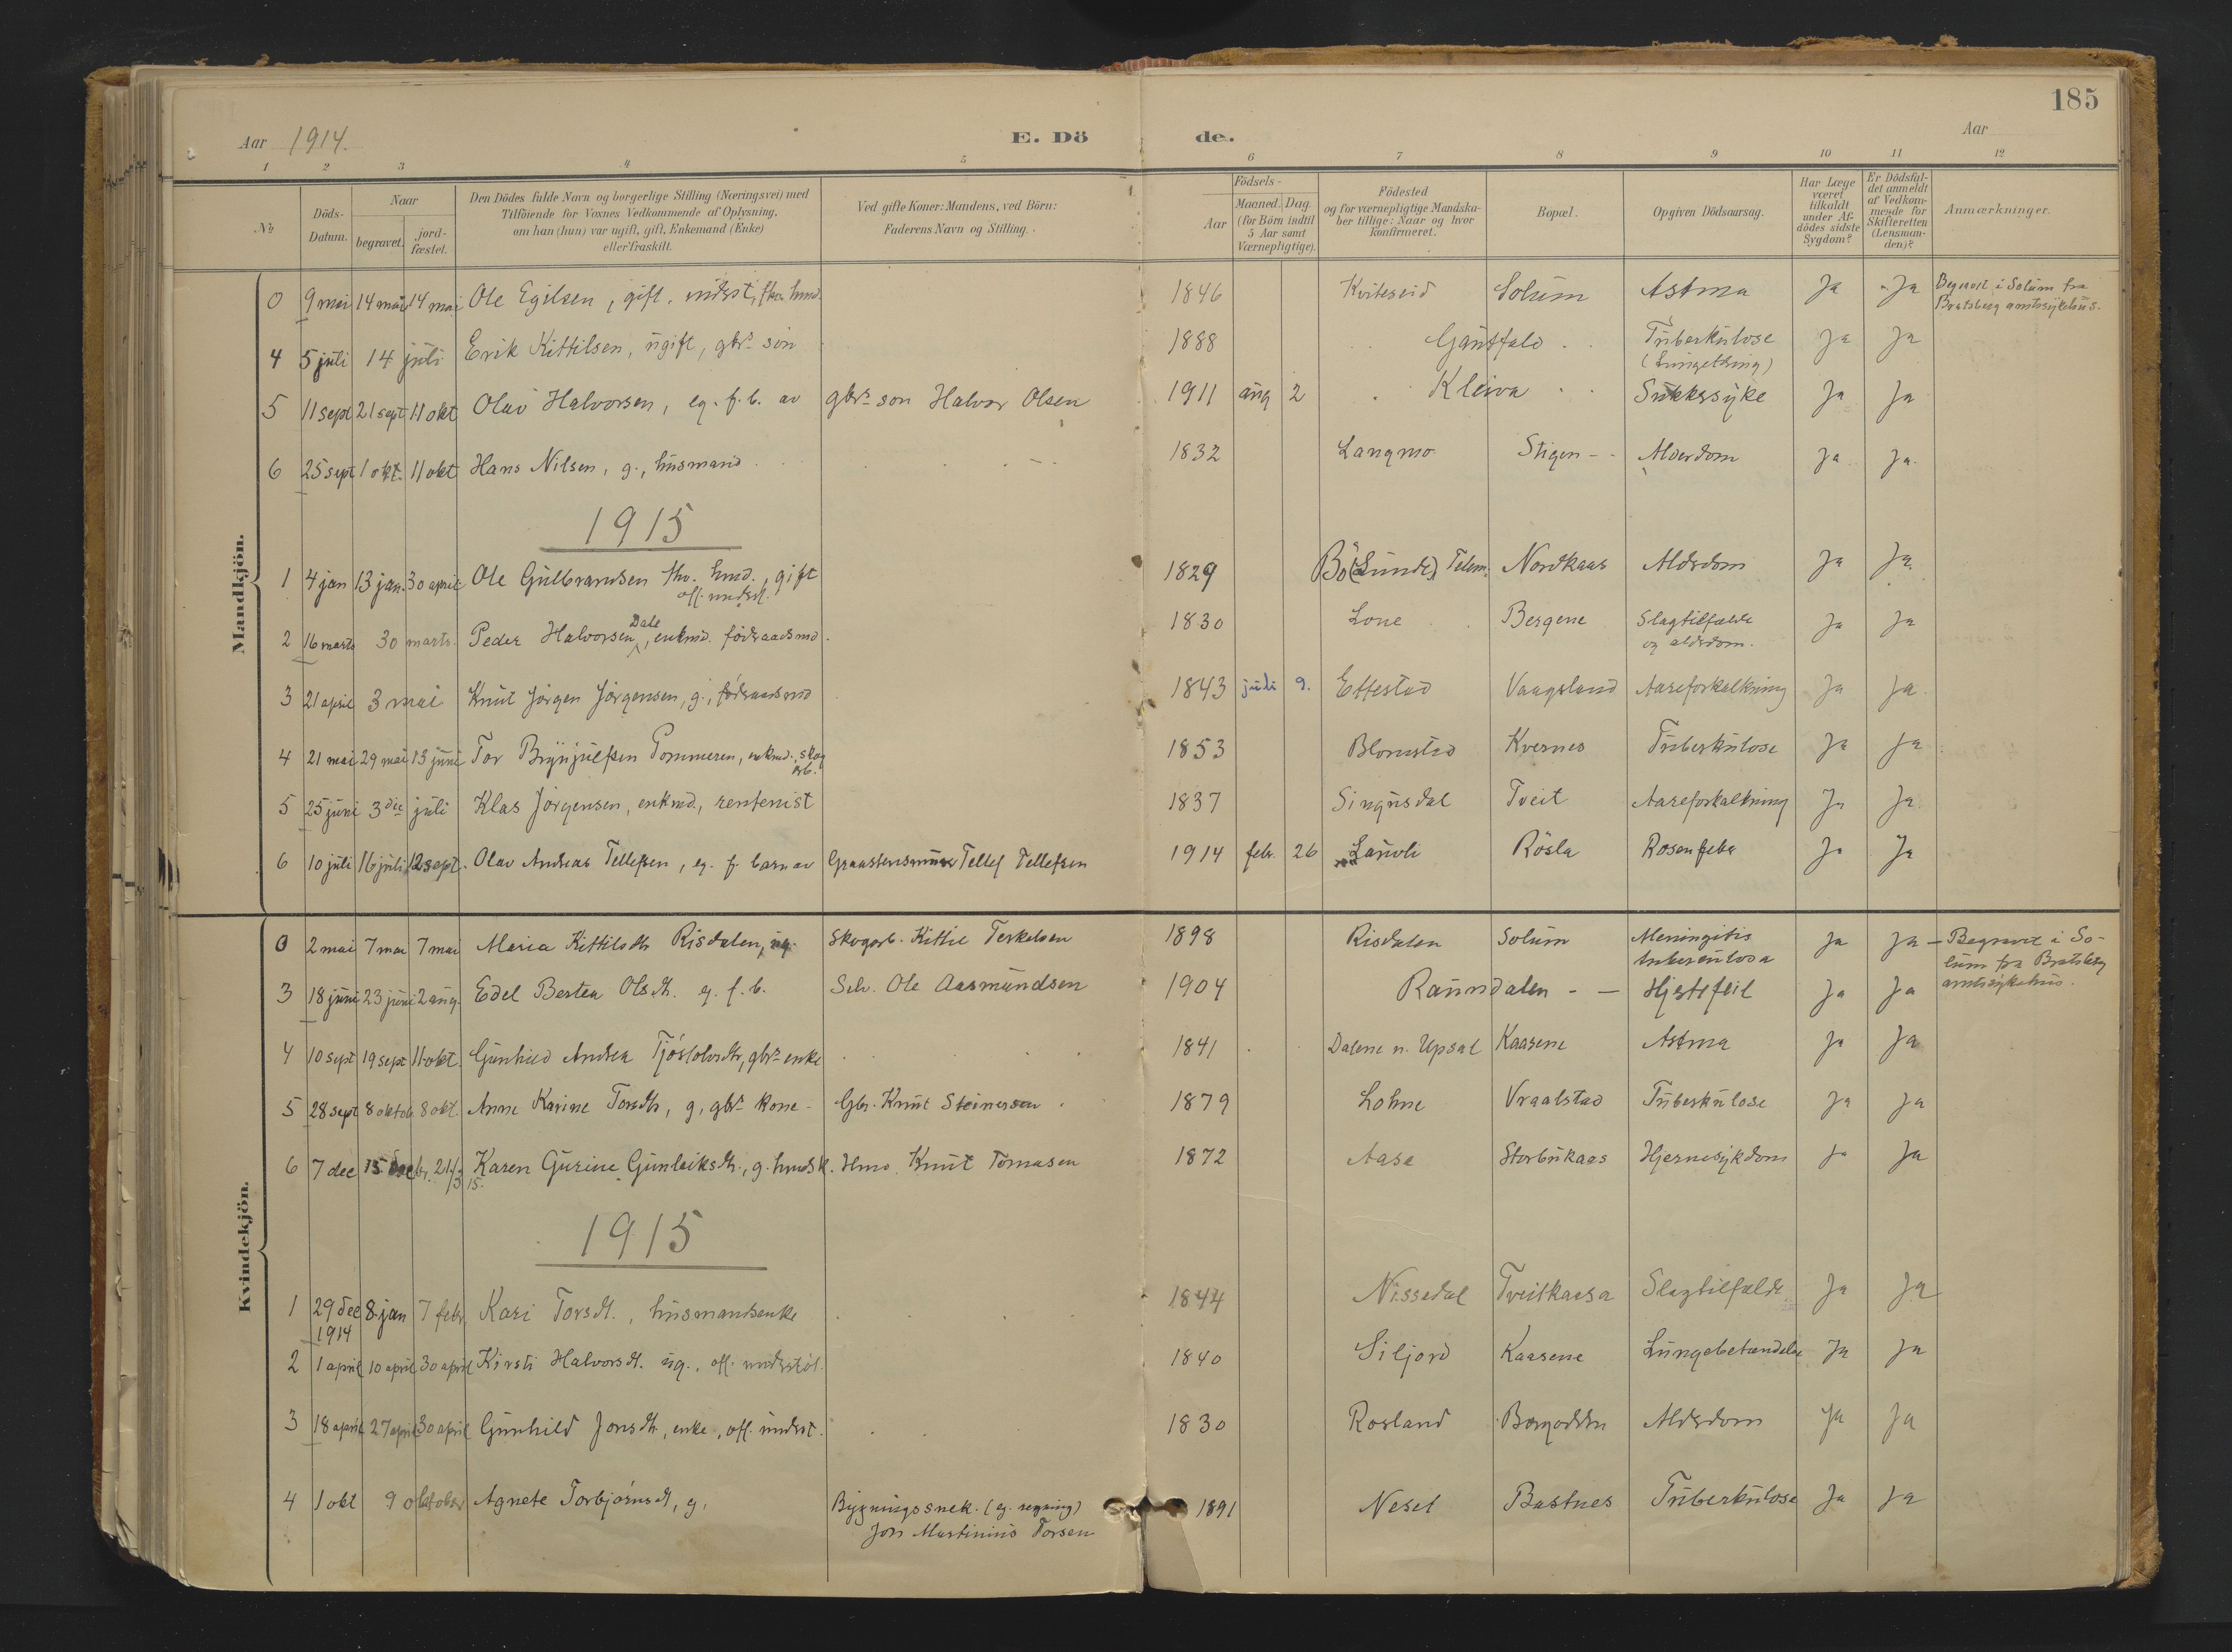 185
Aar 1914.
E. Dö de.
Aar
1 2 3 4 5 6 7 8 9 10 11 12
№
Döds-
Datum.
Naar
begravet.
jord-
fæstet.
Den Dödes fulde Navn og borgerlige Stilling (Næringsvei) med
Tilföiende for Voxnes Vedkommende af Oplysning,
om han (hun) var ugift, gift, Enkemand (Enke)
eller fraskilt.
Ved gifte Koner: Mandens, ved Börn:
Faderens Navn og Stilling.
Födsels-
Aar
Maaned. Dag.
(for Börn indtil
5 Aar samt
Værnepligtige).
Födested
og for værnepligtige Mandska-
ber tillige: Naar og hvor
konfirmeret.
Bopæl.
Opgiven Dödsaarsag.
Har Læge
været
tilkaldt
under Af-
dödes sidste
Sygdom?
Er Dödsfal-
det anmeldt
af Vedkom-
mende for
Skifteretten
(Lensman-
den)?
Anmærkninger.
Mandkjön.
0 9 mai 14 mai 14 mai Ole Egilsen, gift, hmd. 1846 Kviteseid Solum Astma Ja Ja Begravet i Solum fra
Bratsberg amtssykehus.
4 5 juli 14 juli Erik Kittilsen, ugift, gbr. søn 1888 Gautfald Tuberkulose Ja Ja
5 11 sept 21 sept 11 okt Olav Halvorsen, eg. f. b. av gbr. søn Halvor Olsen 1911 aug 2 Kleiva Sukkersyke Ja Ja
6 25 sept 1 okt. 11 okt Hans Nilsen, g., husmand 1832 Langmo Stigen Alderdom Ja Ja
1915
1 4 jan 13 jan. 30 april Ole Gulbrandsen fhv. hmd., gift 1829 Bø (Lunde) Telem. Nordkaas Aldrdom Ja Ja
off. underst.
2 16 marts 30 marts. Peder Halvorsen Dale, enkmd. föderaadsmd. 1830 Lone Bergene Slagtilfælde Ja Ja
og aldrdom.
3 21 april 3 mai Knut Jörgen Jörgensen, g., föderaadsmd 1843 juli 9. Effestad Vaagsland Aareforkalkning Ja Ja
4 21 mai 29 mai 13 juni Tor Brynjulfsen Pommeren, enkmd., skog 1853 Blomstad Kvernes Tuberkulose Ja Ja
arb.
5 25 juni 3die juli Klas Jörgensen, enkmd., rentenist 1837 Singusdal Tveit Aareforkalkning Ja Ja
6 10 juli 16 juli 12 sept. Olav Andreas Tellefsen, eg. f. barn av Graastensminer Tellef Tellefsen 1914 febr. 26 Lauvli Rösla Rosenfeber Ja Ja
Kvindekjön.
0 2 mai 7 mai 7 mai Maria Kittilsdtr Risdalen, ug. Skogarb. Kittil Terkelsen 1898 Risdalen Solum Meningitis Ja Ja – Begravet i So-
tuberculosa
lum fra Bratsberg
amtssykehus.
3 18 juni 23 juni 2 aug. Edel Bertea Olsdtr. eg. f. b. Selv. Ole Aasmundsen 1904 Raundalen Hjertefeil Ja Ja
4 10 sept 19 sept 11. okt. Gunhild Andrea Tjöstolvsdtr, gbr. enke 1841 Dalene u. Upsal Kaasene Astma Ja Ja
5 28 sept 8 oktob 8 okt. Anne Karine Torsdtr, g, gbr. kone Gbr. Knut Steinersen 1879 Lohne Vraalstad Tuberkulose Ja Ja
6 7 dec 15 decbr. 21/3 15. Karen Gurine Gunleiksdtr., g. hmdsk. Hmd. Knut Tomasen 1872 Aase Storbukaas Hjernesykdom Ja Ja
1915
1 29 dec 8. jan 7 febr Kari Torsdt., husmandsenke 1844 Nissedal Tveitkaasa Slagtilfælde Ja Ja
1914
2 1 april 10 april 30 april Kirsti Halvorsdt. ug., off. 1840 Siljord Kaasene Lungebetændelse Ja Ja
3 18 april 27 april 30 april Gunhild Jonsdtr, enke, off. underst. 1830 Rosland Aldrdom Ja Ja
4 1 okt 9 oktober Agnete Torbjörnsdt, g. Bygningssnek. (eg. regning) 1891 Nesel Bastnes Tuberkulose Ja Ja
Jon Martinius Torsen